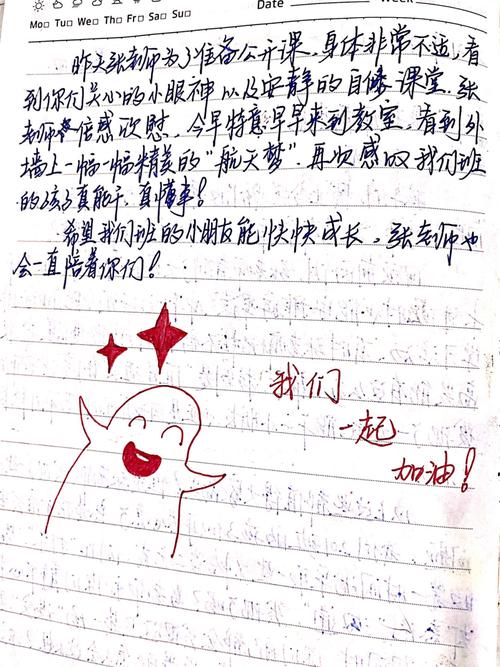 Date Week
Mo Tu We Th Fr Sa Su
昨天张老师为了准备公开课,身体非常不适,看
到你们关心的小眼神以及安静的自修课堂,张
老师倍感欣慰,今早特意早早来到教室,看到外
墙上一幅一幅精美的“航天梦”,再次感叹我们班
的孩子真能干,真懂事!
希望我们班的小朋友能快快成长,张老师也
会一直陪着你们!
我们
一起
加油!